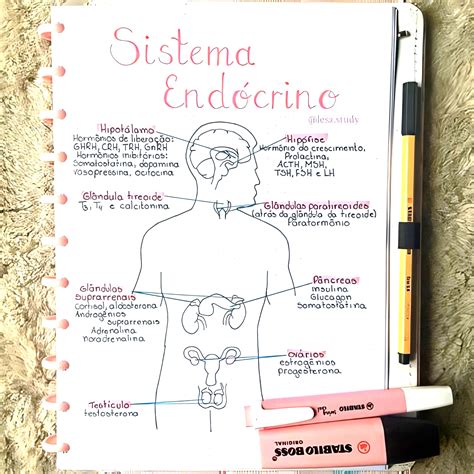 Sistema
Endócrino
@lesa.study
Hipotálamo
Hormônios de liberação:
GHRH, CRH, TRH, GnRH
Hormônios inibitórios:
Somatostatina, dopamina
Vasopressina, ocitocina
Hipófise
Hormônio do crescimento,
Prolactina,
ACTH, MSH,
TSH, FSH e LH
Glândula tireoide
T3, T4 e calcitonina
Glândulas paratireoides
(atrás da glândula da tireoide)
Paratormônio
Glândulas
suprarrenais
Cortisol, aldosterona
Androgênios
suprarrenais
Adrenalina
noradrenalina
Pâncreas
insulina
Glucagon
Somatostatina
Ovários
estrogênios
progesterona
Testículo
testosterona
STABILO
STABILO
swing
STABILO BOSS
ORIGINAL